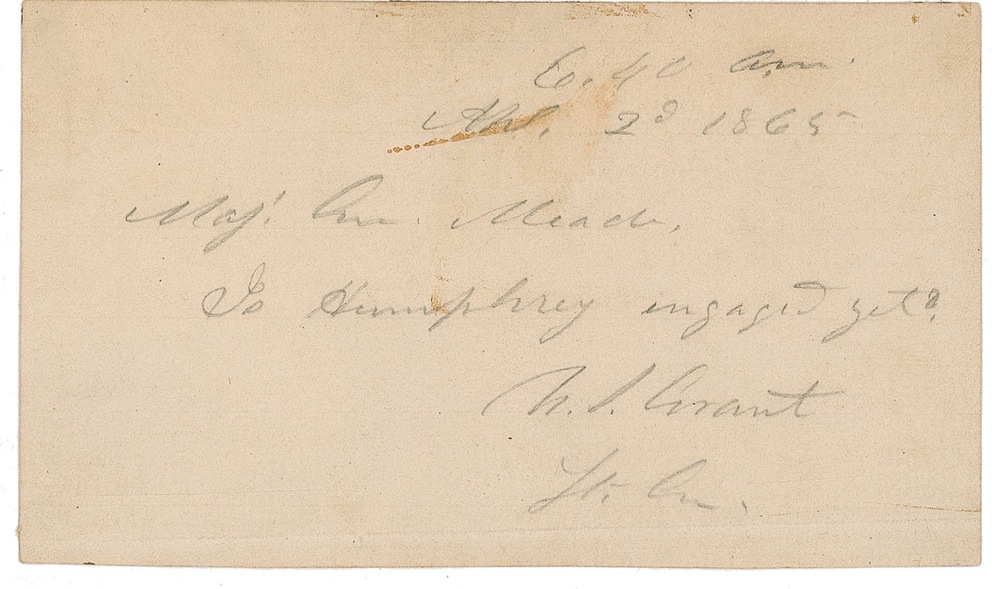 6.40 a.m.
Apl. 2d 1865
Maj. Gen. Meade,
Is Humphrey engaged yet?
U. S. Grant
Lt. Gn.